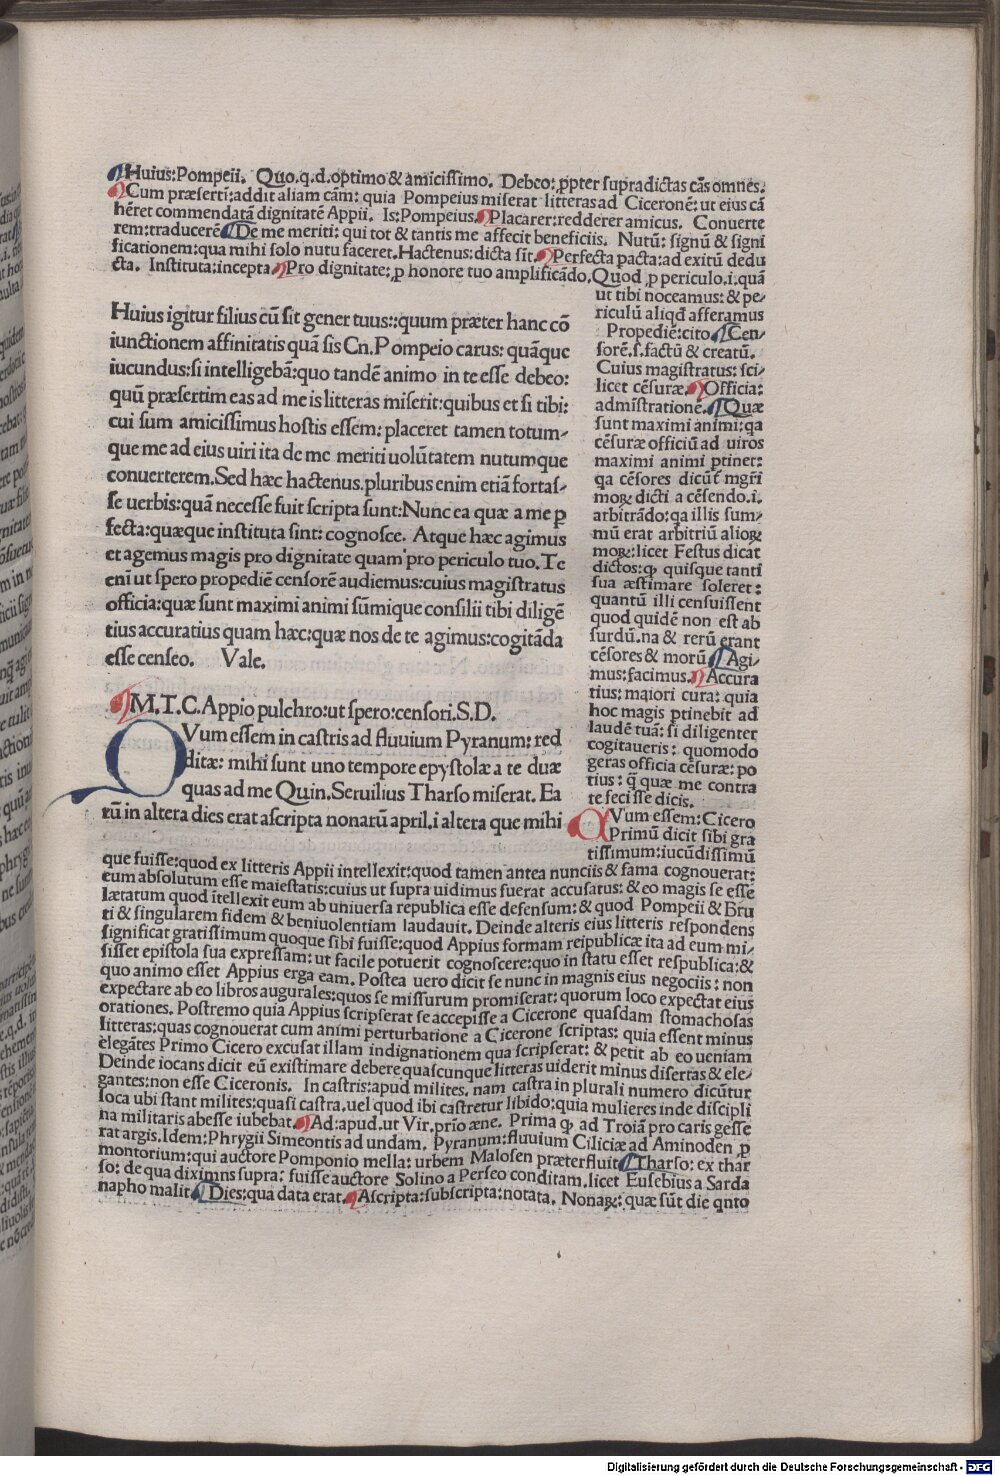 Huius:Pompeii. Quo.q.d.optimo & amicissimo. Debeo: ꝓpter supradictas cās omnes.
Cum præserti:addit aliam cām: quia Pompeius miserat litteras ad Ciceronē: ut eius cā
hēret commendatā dignitatē Appii. Is:Pompeius. Placarer:redderer amicus. Conuerte
rem:traducerē De me meriti: qui tot & tantis me affecit beneficiis. Nutū: signū & signi
ficationem:qua mihi solo nutu faceret. Hactenus: dicta sit. Perfecta pacta:ad exitū dedu
cta. Instituta:incepta Pro dignitate: ꝓ honore tuo amplificādo. Quod ꝓ periculo.i.quā
ut tibi noceamus: & pe-
riculū aliqđ afferamus
Propediē:cito Cen-
sorē.s.factū & creatū.
Cuius magistratus: sci-
licet cēsuræ. Officia:
admīstrationē. Quæ
sunt maximi animi: qa
cēsuræ officiū ad uiros
maximi animi ptinet:
qa cēsores dicūt mgr̄i
moꝝ dicti a cēsendo.i.
arbitrādo: qa illis sum-
mū erat arbitriū alioꝝ
moꝝ: licet Festus dicat
dictos: ꝙ quisque tanti
sua æstimare soleret:
quantū illi censuissent
quod quidē non est ab
surdū.na & rerū erant
cēsores & morū Agi-
mus:facimus. Accura
tius: maiori cura: quia
hoc magis ptinebit ad
laudē tuā: si diligenter
cogitaueris: quomodo
geras officia cēsuræ: po
tius: q̄ quæ me contra
te fecisse dicis.
Huius igitur filius cū sit gener tuus::quum præter hanc cō
iunctionem affinitatis quā sis Cn.Pompeio carus: quāque
iucundus:si intelligebā:quo tandē animo in te esse debeo:
quū præsertim eas ad me is litteras miserit:quibus et si tibi:
cui sum amicissimus hostis essem: placeret tamen totum-
que me ad eius uiri ita de me meriti uolūtatem nutumque
conuerterem.Sed hæc hactenus.pluribus enim etiā fortas-
se uerbis:quā necesse fuit scripta sunt:Nunc ea quæ a me ꝑ
fecta:quæque instituta sint: cognosce. Atque hæc agimus
et agemus magis pro dignitate quam pro periculo tuo.Te
enī ut spero propediē censorē audiemus:cuius magistratus
officia:quæ sunt maximi animi sūmique consilii tibi diligē
tius accuratius quam hæc:quæ nos de te agimus:cogitāda
esse censeo. Vale.
M.T.C.Appio pulchro:ut spero:censori.S.D.
QVum essem in castris ad fluuium Pyranum: red
ditæ: mihi sunt uno tempore epystolæ a te duæ
quas ad me Quin.Seruilius Tharso miserat. Ea
rū in altera dies erat ascripta nonarū april.i altera que mihi
QVum essem: Cicero
Primū dicit sibi gra
tissimum:iucūdissimū
que fuisse:quod ex litteris Appii intellexit:quod tamen antea nunciis & fama cognouerat:
eum absolutum esse maiestatis:cuius ut supra uidimus fuerat accusatus: & eo magis se esse
lætatum quod ītellexit eum ab uniuersa republica esse defensum: & quod Pompeii & Bru
ti & singularem fidem & beniuolentiam laudauit. Deinde alteris eius litteris respondens
significat gratissimum quoque sibi fuisse:quod Appius formam reipublicæ ita ad eum mi-
sisset epistola sua expressam: ut facile potuerit cognoscere:quo in statu esset respublica:&
quo animo esset Appius erga eam. Postea uero dicit se nunc in magnis eius negociis: non
expectare ab eo libros augurales:quos se missurum promiserat: quorum loco expectat eius
orationes. Postremo quia Appius scripserat se accepisse a Cicerone quasdam stomachosas
litteras:quas cognouerat cum animi perturbatione a Cicerone scriptas: quia essent minus
elegātes Primo Cicero excusat illam indignationem qua scripserat: & petit ab eo ueniam
Deinde iocans dicit eū existimare debere quascunque litteras uiderit minus disertas & ele-
gantes:non esse Ciceronis. In castris:apud milites. nam castra in plurali numero dicūtur
loca ubi stant milites:quasi castra.uel quod ibi castretur libido:quia mulieres inde discipli
na militaris abesse iubebat. Ad:apud.ut Vir.prio æne. Prima ꝙ ad Troiā pro caris gesse
rat argis.Idem:Phrygii Simeontis ad undam. Pyranum:fluuium Ciliciæ ad Aminoden ꝓ
montorium:qui auctore Pomponio mella: urbem Malosen præterfluit Tharso: ex thar
so: de qua diximns supra: fuisse auctore Solino a Perseo conditam.licet Eusebius a Sarda
napho malit. Dies:qua data erat. Ascripta:subscripta:notata. Nonaꝝ: quæ sūt die qnto
Digitalisierung gefördert durch die Deutsche Forschungsgemeinschaft - DFG